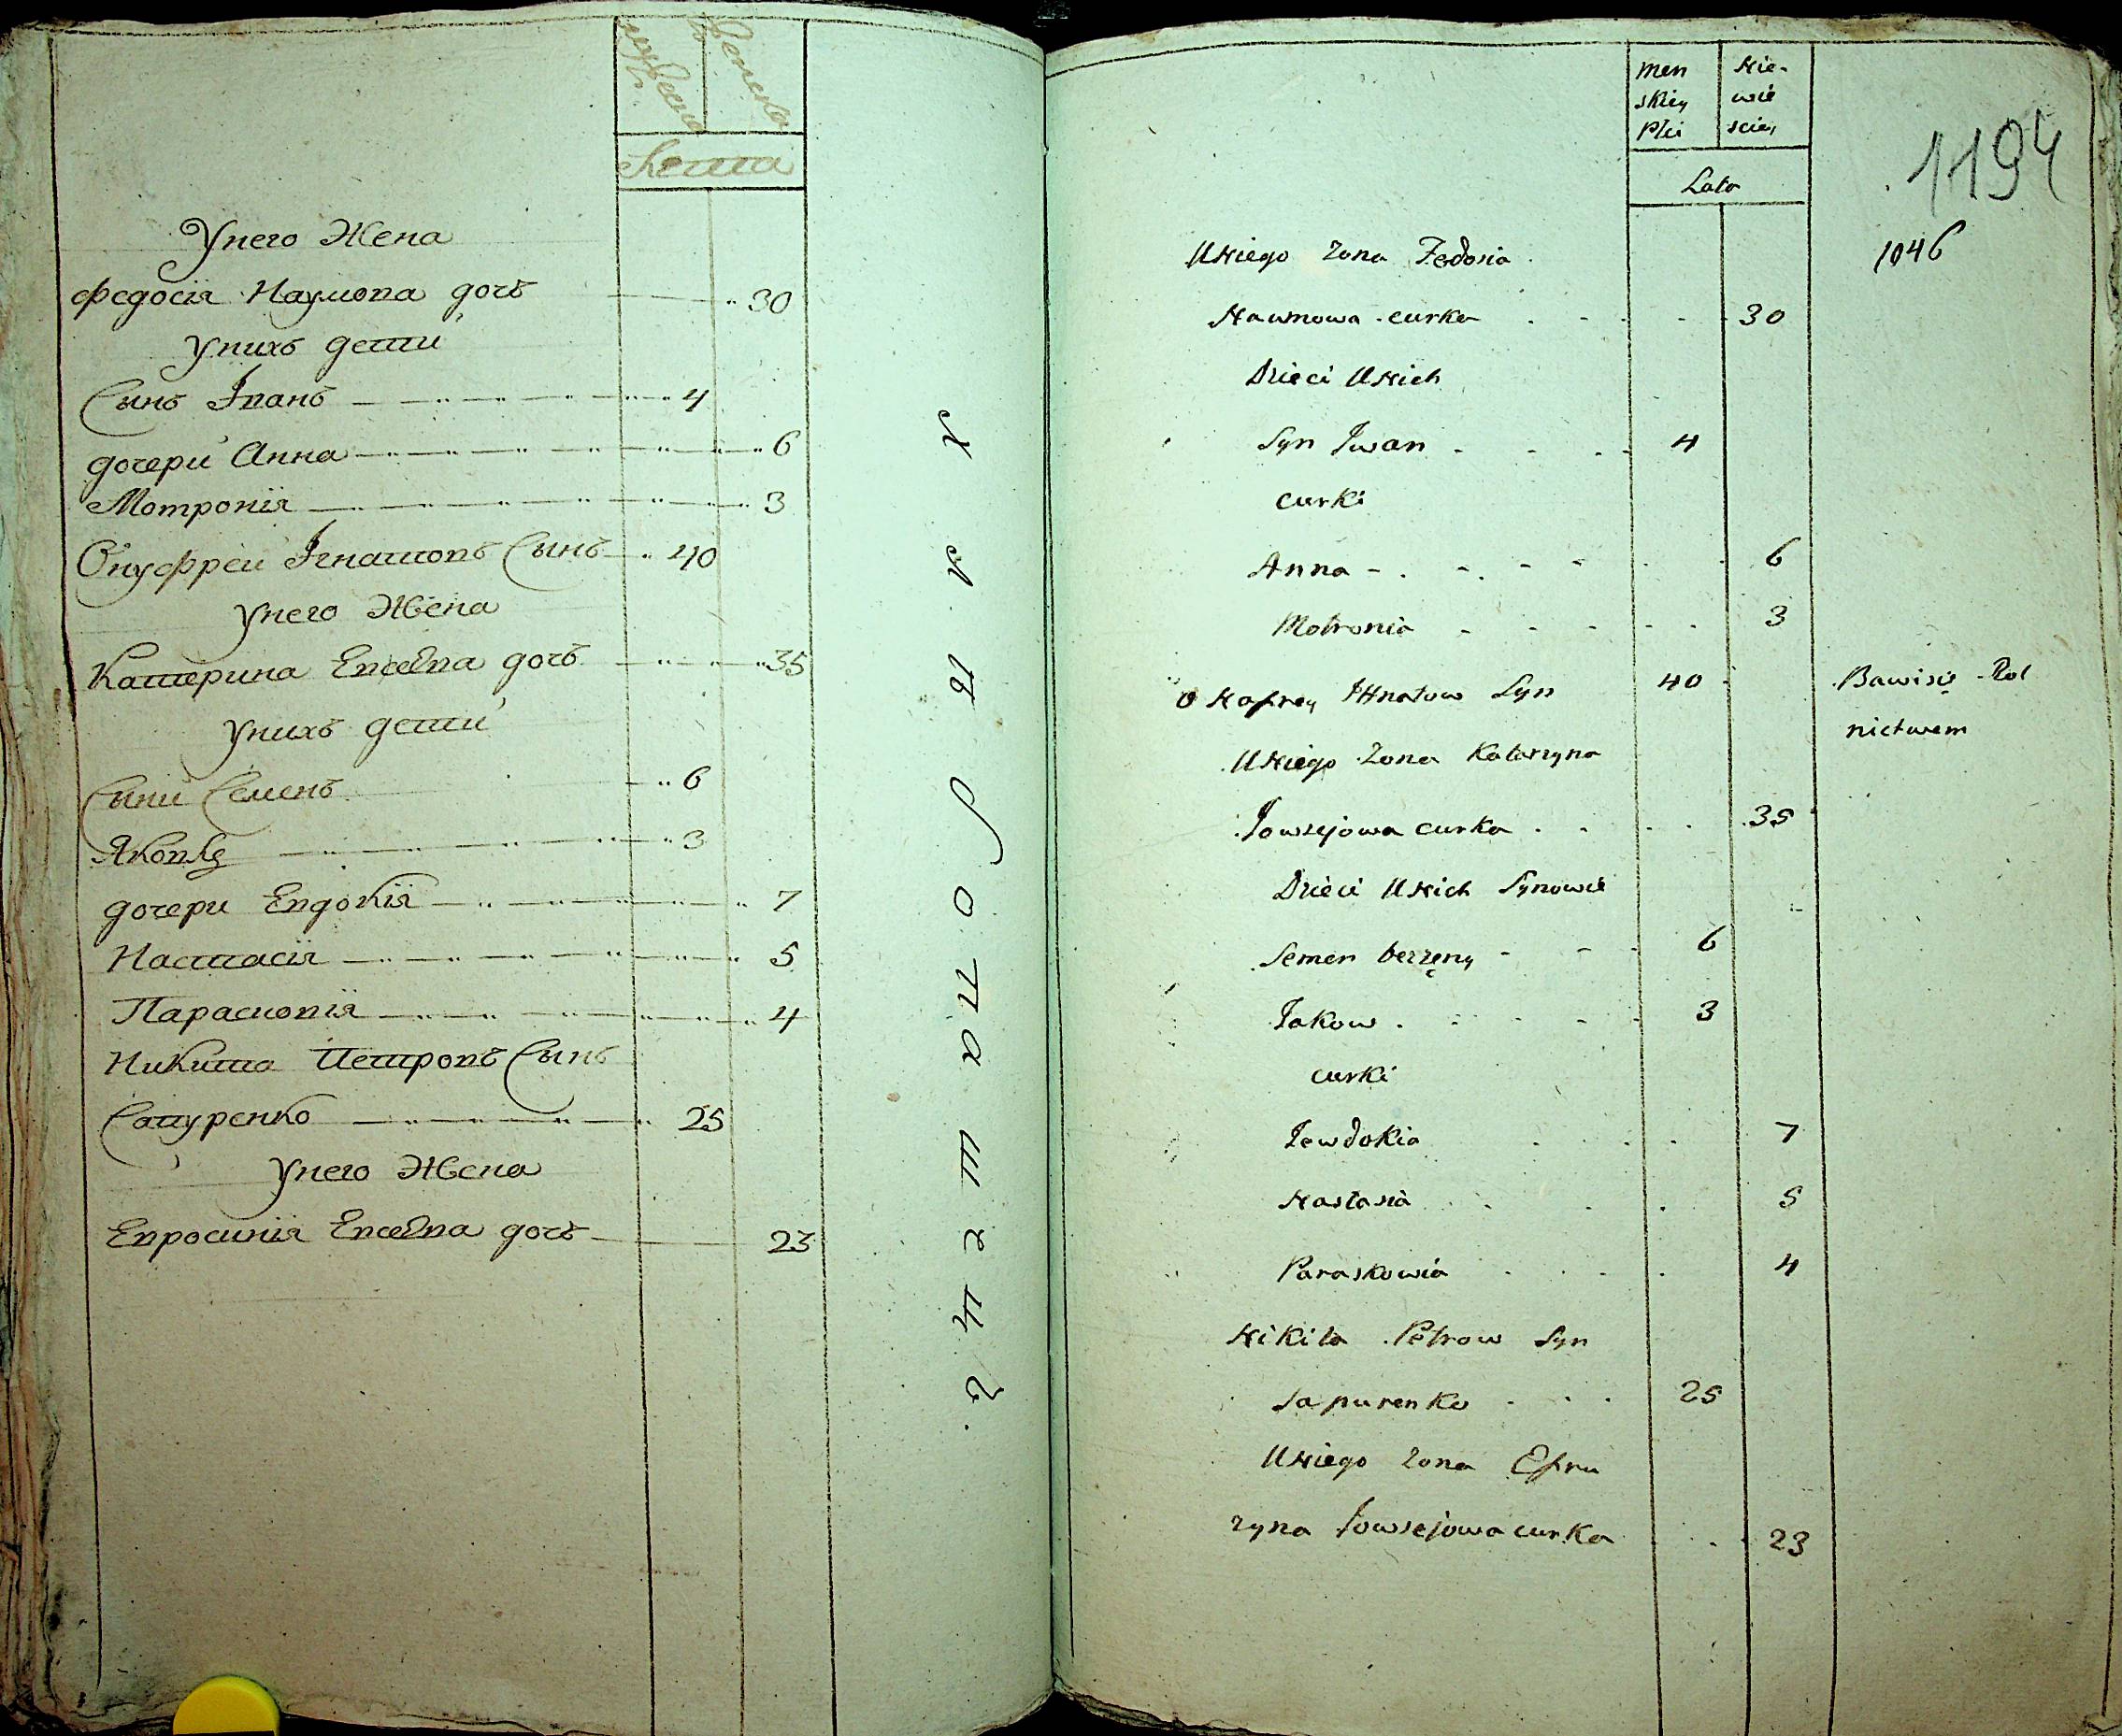 мужеска
женска
Лета
У него Жена
Федосія Наумова дочь 30
У нихъ дети
Сынъ Іванъ 4
дочери Анна 6
Мотронія 3
Онуфрей Ігнатовъ Сынъ 40
У него Жена
Катерина Евсеева дочь 35
У нихъ дети
Сыни Семенъ 6
Яковъ 3
дочери Евдокія 7
Настасія 5
Парасковія 4
Никита Петровъ Сынъ
Сапуренко 25
У него Жена
Евросинія Евсеева дочь 23
men Nie-
skiey wie
Płci sciey
Lata
1194
1046
U Niego Żona Fedosia
Naumowa curka 30
Dzieci U Nich
Syn Iwan 4
curki
Anna 6
Motronia 3
O Nofrey IHnatow Syn 40 Bawi się Rol
nictwem
U Niego Żona Katarzyna
Jowsejowa curka 35
Dzieci U Nich Synowie
Semen bezżęny 6
Jakow 3
curki
Jewdokia 7
Nastasia 5
Paraskowia 4
Nikita Petrow Syn
Sapurenko 25
U Niego Żona Efru
zyna Jowsejowa curka 23